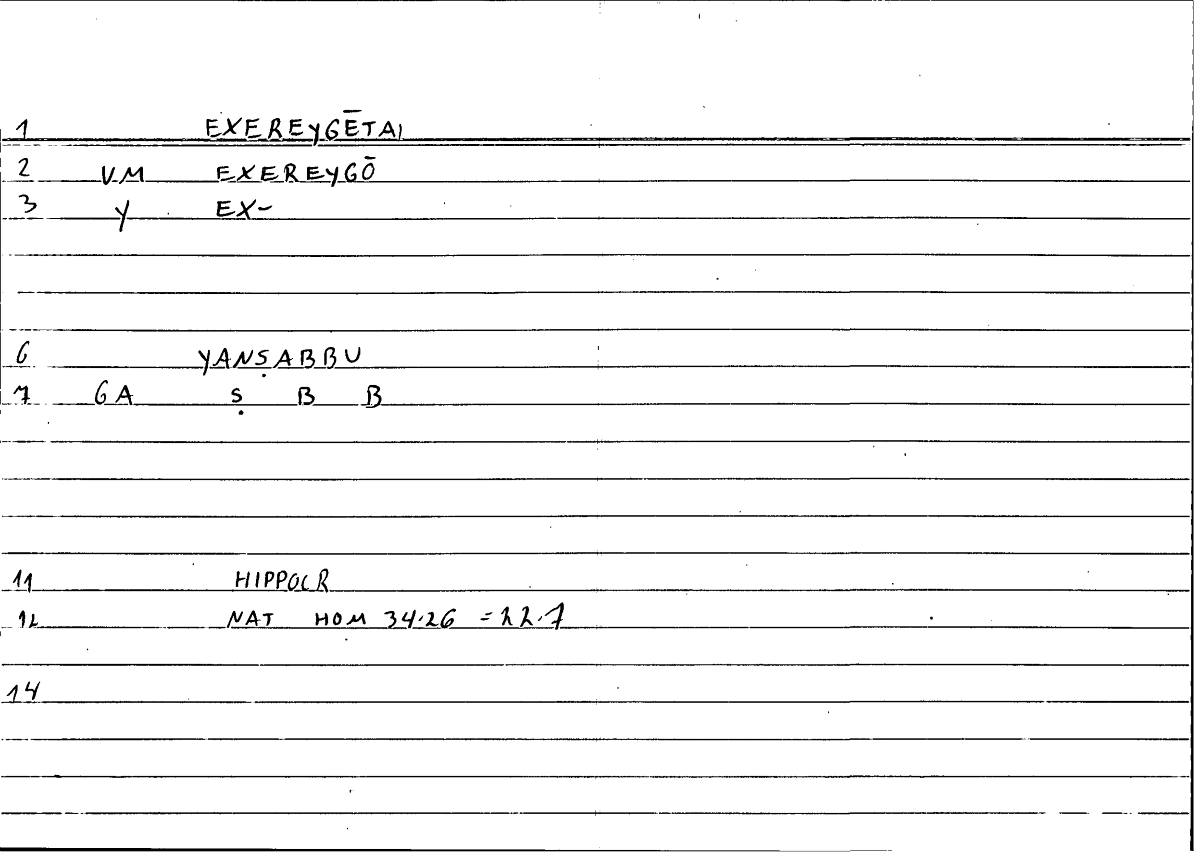 1 EXEREYGĒTAI
2 VM EXEREYGŌ
3 Y EX-
6 YANṢABBU
7 GA Ṣ B B
11 HIPPOCR
12 NAT HOM 34.26 = 22.7
14